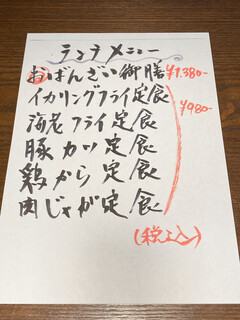 ランチメニュー
おばんざい御膳 ¥1.380-
イカリングフライ定食
海老フライ定食
豚カツ定食
鶏から定食
肉じゃが定食
¥980-
(税込)